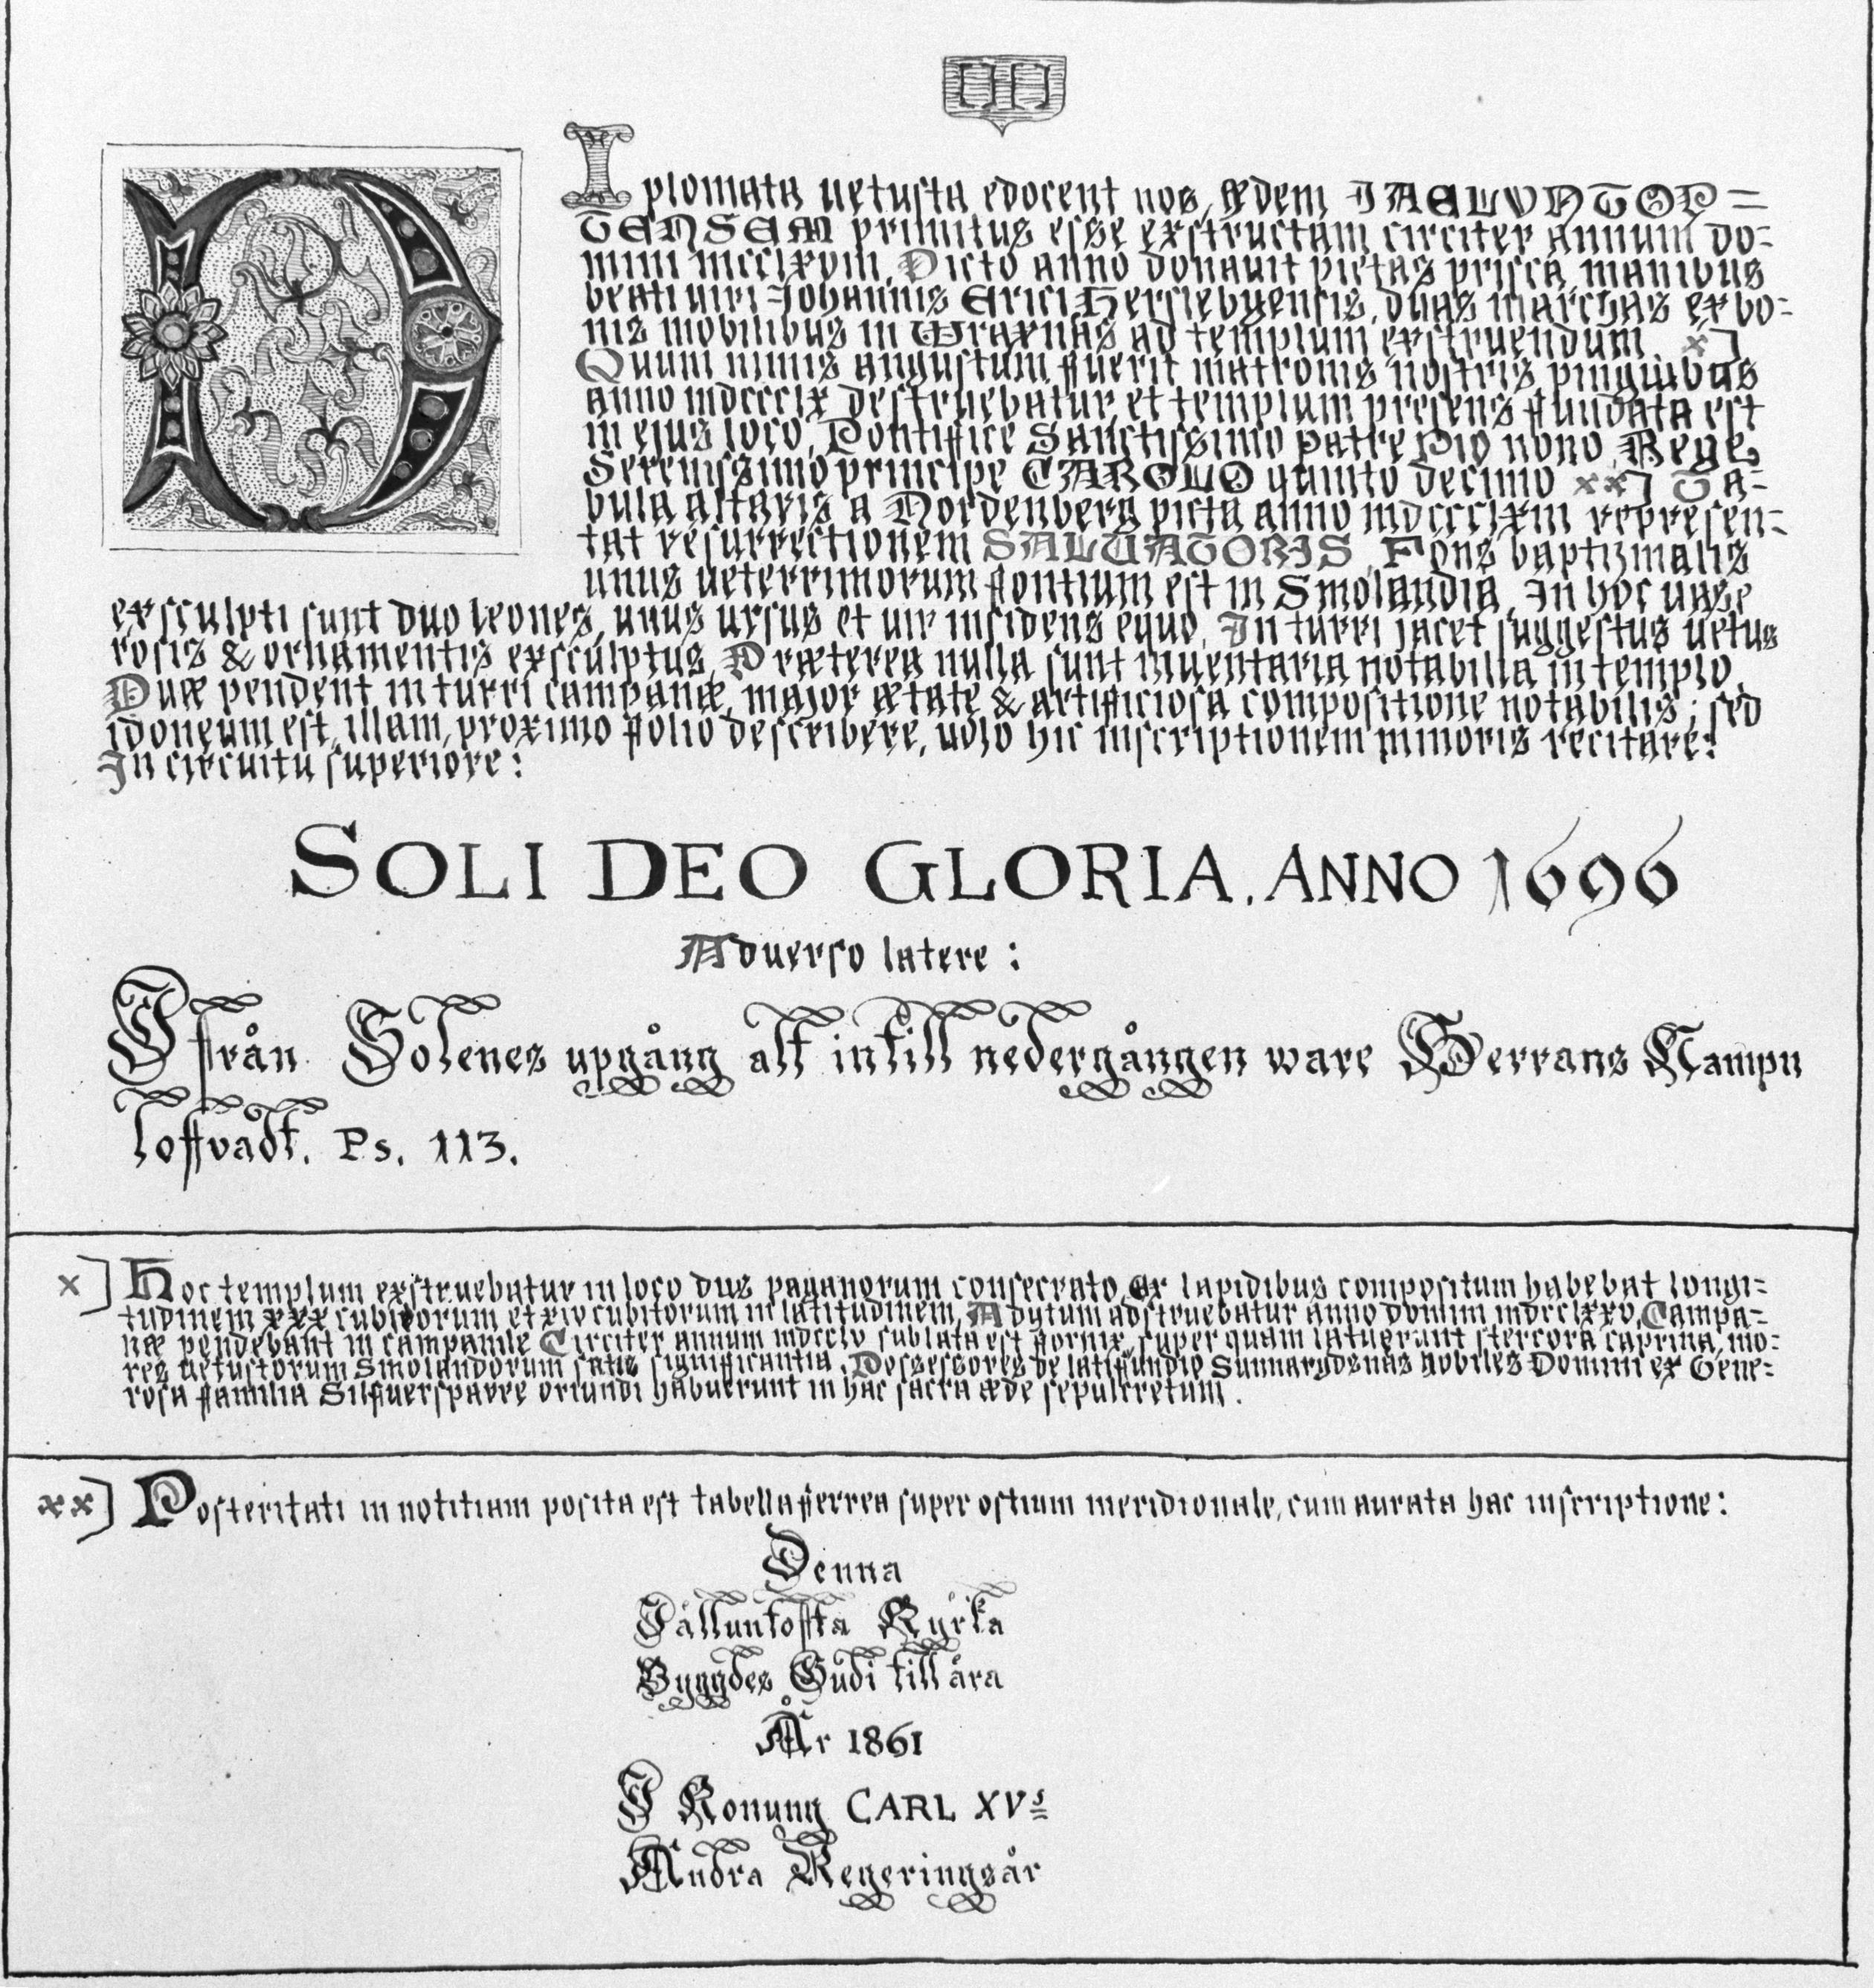 III
DIplomata uetusta edocent nos, ædem JAELUNTOP=
TENSEM primitus esse exstructam circiter annum do=
mini mcclxviii. Dicto anno donauit pietas prisca, manibus
beati uiri Johannis Erici Herslebyensis, duas marchas ex bo=
nis mobilibus in Wraxnäs ad templum exstruendum. x]
Quum nimis angustum fuerit matronis nostris pinguibus
anno mdccclx destruebatur, et templum presens fundata est
in ejus loco, Pontifice Sanctissimo patre Pio nono, Rege
Serenissimo principe CAROLO quinto decimo xx] Ta=
bula altaris a Nordenberg picta anno mdccclxiii represen=
tat resurrectionem SALUATORIS. Fons baptizmalis
unus ueterrimorum fontium est in Smolandia. In hoc uase
exsculpti sunt duo leones, unus ursus et uir insidens equo. In turri jacet suggestus uetus
rosis & ornamentis exsculptus. Præterea nulla sunt inuentaria notabilia in templo.
Duæ pendent in turri campanæ, major ætate & artificiosa compositione notabilis; sed
idoneum est, illam, proximo folio describere, uolo hic inscriptionem minoris recitare:
In circuitu superiore:
SOLI DEO GLORIA. ANNO 1696
Aduerso latere:
Ifrån Solenes upgång alt intill nedergången ware Herrans Nampn
loffvadt. Ps. 113.
x] Hoc templum exstruebatur in loco diis paganorum consecrato. Ex lapidibus compositum habebat longi=
tudinem xxx cubitorum et xiv cubitorum in latitudinem. Adytum adstruebatur anno domini mdcclxxv. Campa=
næ pendebant in campanile. Circiter annum mdcclv sublata est fornix, super quam latuerunt stercora caprina, mo=
res uetustorum Smolandorum satis significantia. Possessores de latifundio Sunnarydsnäs nobiles Domini ex Gene=
rosa familia Silfuersparre oriundi habuerunt in hac sacra æde sepulcretum.
xx] Posteritati in notitiam posita est tabella ferrea super ostium meridionale, cum aurata hac inscriptione:
Denna
Jälluntofta Kyrka
Byggdes Gudi till ära
År 1861
I Konung CARL XVs
Andra Regeringsår